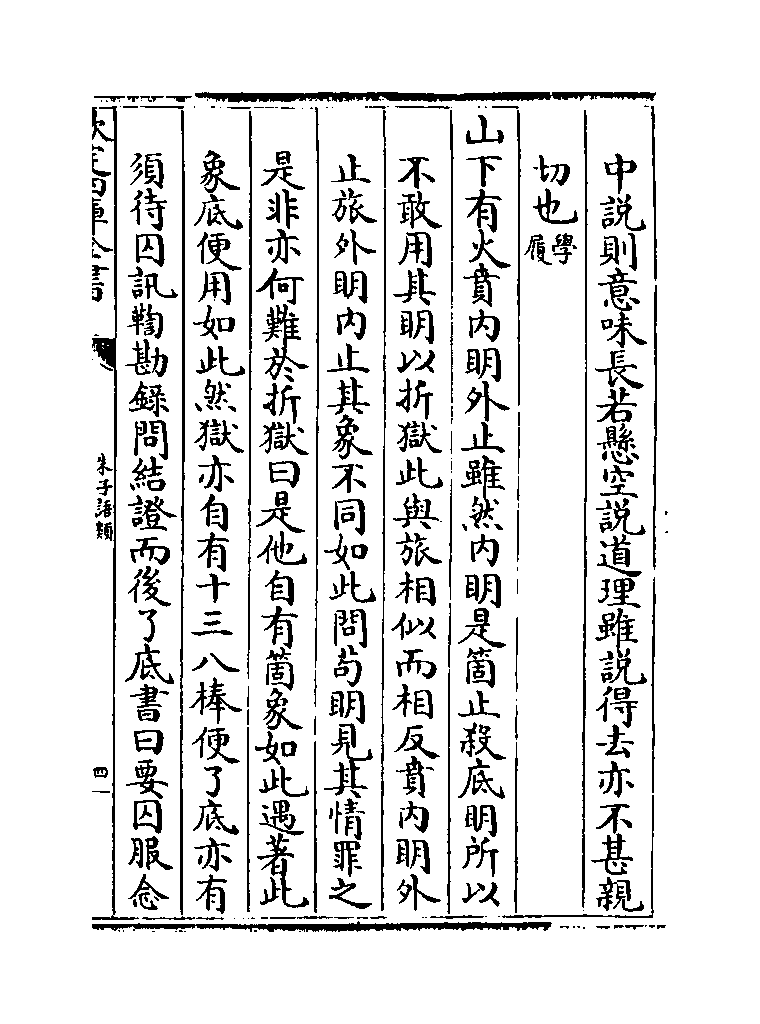 中説則意味長若懸空説道理雖説得去亦不甚親
切也學履
山下有火賁内明外止雖然内明是箇止殺底明所以
不敢用其明以折獄此與旅相似而相反賁内明外
止旅外明内止其象不同如此問茍明見其情罪之
是非亦何難於折獄曰是他自有箇象如此遇著此
象底便用如此然獄亦自有十三八棒便了底亦有
須待囚訊鞫勘錄問結證而後了底書曰要囚服念
欽定四庫全書
朱子語類
四一